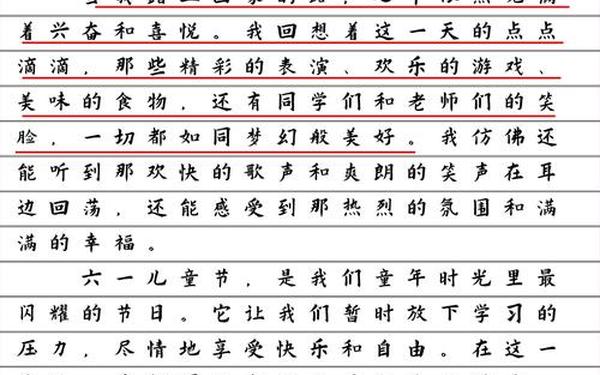 着兴奋和喜悦。我回想着这一天的点点
滴滴，那些精彩的表演、欢乐的游戏、
美味的食物，还有同学们和老师们的笑
脸，一切都如同梦幻般美好。我仿佛还
能听到那欢快的歌声和爽朗的笑声在耳
边回荡，还能感受到那热烈的氛围和满
满的幸福。
六一儿童节，是我们童年时光里最
闪耀的节日。它让我们暂时放下学习的
压力，尽情地享受快乐和自由。在这一